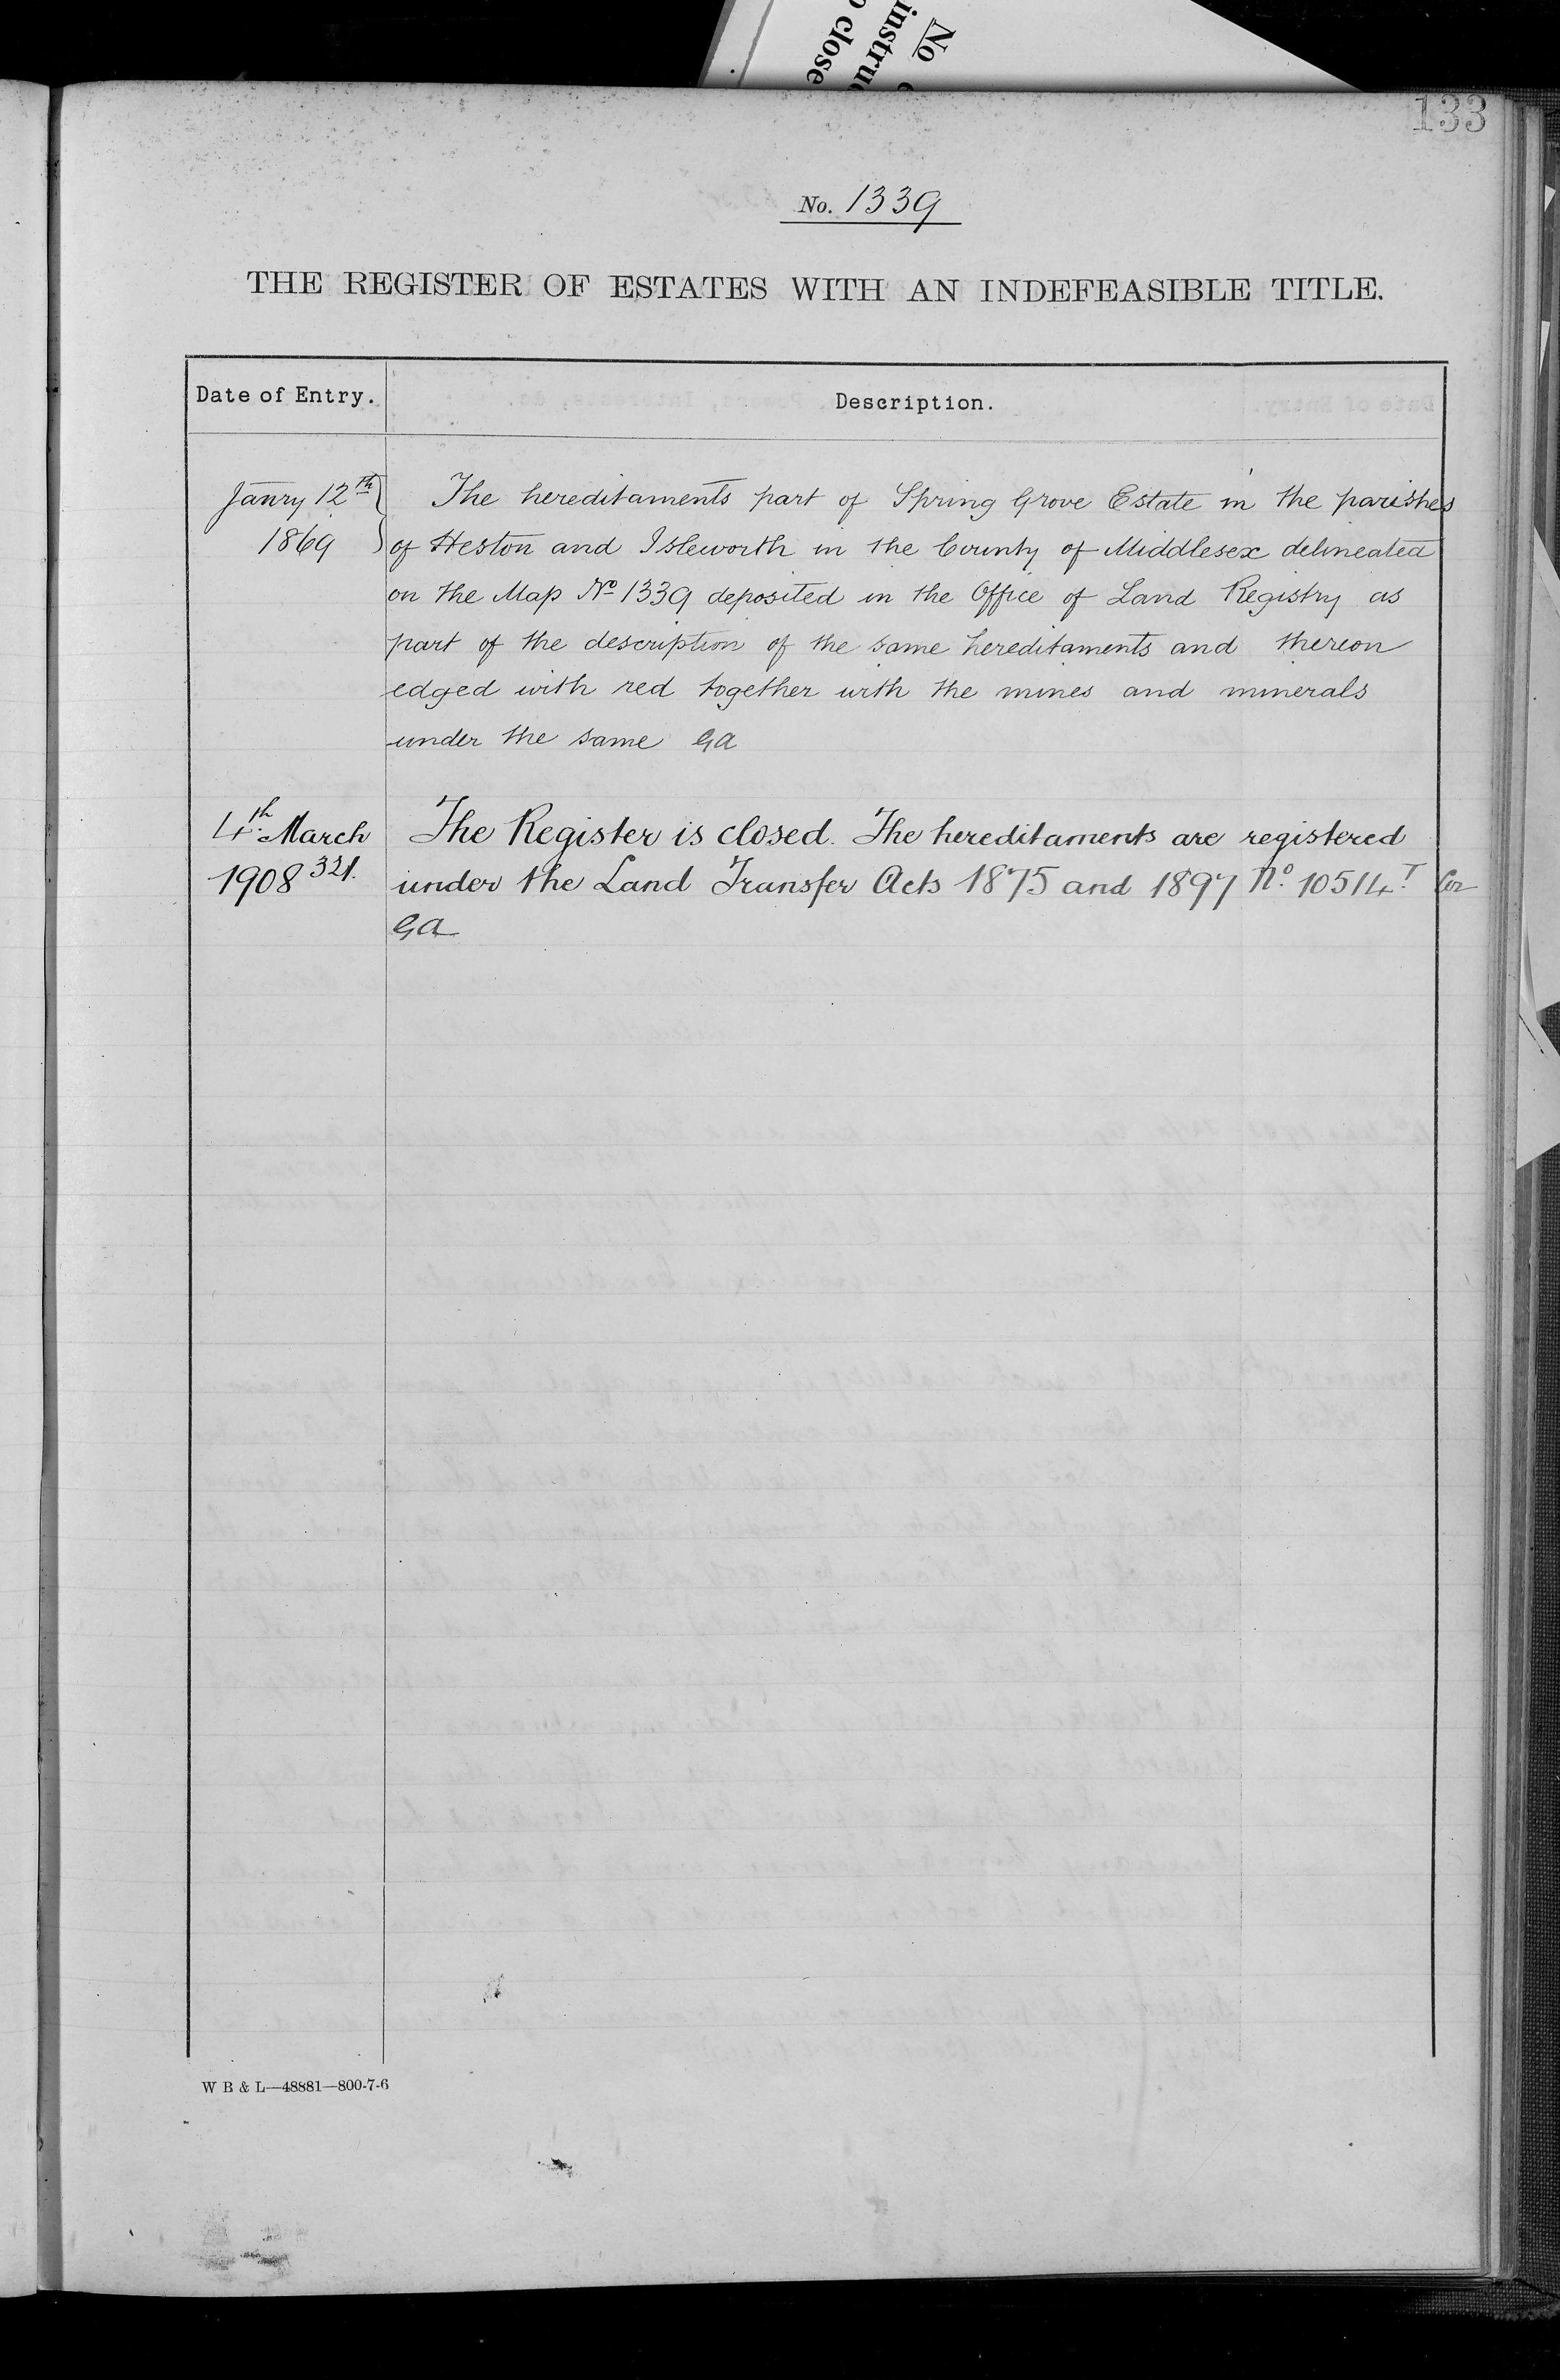 No
instru
o close
133
No. 1339
THE REGISTER OF ESTATES WITH AN INDEFEASIBLE TITLE.
Date of Entry.
Description.
Janry 12th
1869
The hereditaments part of Spring Grove Estate in the parishes
of Heston and Isleworth in the County of Middlesex delineated
on the Map No 1339 deposited in the Office of Land Registry as
part of the description of the same hereditaments and thereon
edged with red together with the mines and minerals
under the same GA
4th March
1908 321.
The Register is closed. The hereditaments are registered
under the Land Transfer Acts 1875 and 1897 No. 10514T
GA
W B & L—48881—800-7-6